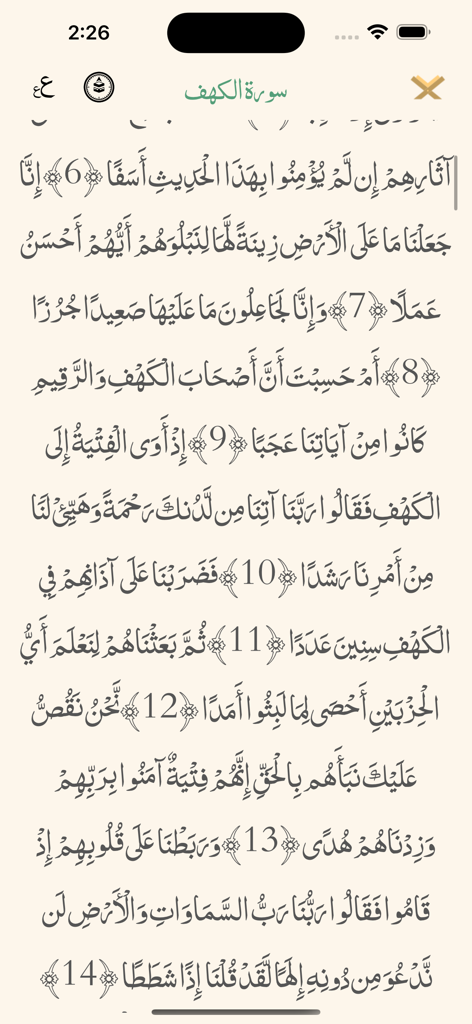 2:26
عع
سورة الكهف
آثَارِهِمْ إِن لَّمْ يُؤْمِنُوا بِهَذَا الْحَدِيثِ أَسَفًا ﴿6﴾ إِنَّا
جَعَلْنَا مَا عَلَى الْأَرْضِ زِينَةً لَّهَا لِنَبْلُوَهُمْ أَيُّهُمْ أَحْسَنُ
عَمَلًا ﴿7﴾ وَإِنَّا لَجَاعِلُونَ مَا عَلَيْهَا صَعِيدًا جُرُزًا
﴿8﴾ أَمْ حَسِبْتَ أَنَّ أَصْحَابَ الْكَهْفِ وَالرَّقِيمِ
كَانُوا مِنْ آيَاتِنَا عَجَبًا ﴿9﴾ إِذْ أَوَى الْفِتْيَةُ إِلَى
الْكَهْفِ فَقَالُوا رَبَّنَا آتِنَا مِن لَّدُنكَ رَحْمَةً وَهَيِّئْ لَنَا
مِنْ أَمْرِنَا رَشَدًا ﴿10﴾ فَضَرَبْنَا عَلَى آذَانِهِمْ فِي
الْكَهْفِ سِنِينَ عَدَدًا ﴿11﴾ ثُمَّ بَعَثْنَاهُمْ لِنَعْلَمَ أَيُّ
الْحِزْبَيْنِ أَحْصَى لِمَا لَبِثُوا أَمَدًا ﴿12﴾ نَّحْنُ نَقُصُّ
عَلَيْكَ نَبَأَهُم بِالْحَقِّ إِنَّهُمْ فِتْيَةٌ آمَنُوا بِرَبِّهِمْ
وَزِدْنَاهُمْ هُدًى ﴿13﴾ وَرَبَطْنَا عَلَى قُلُوبِهِمْ إِذْ
قَامُوا فَقَالُوا رَبُّنَا رَبُّ السَّمَاوَاتِ وَالْأَرْضِ لَن
نَّدْعُوَ مِن دُونِهِ إِلَهًا لَّقَدْ قُلْنَا إِذًا شَطَطًا ﴿14﴾